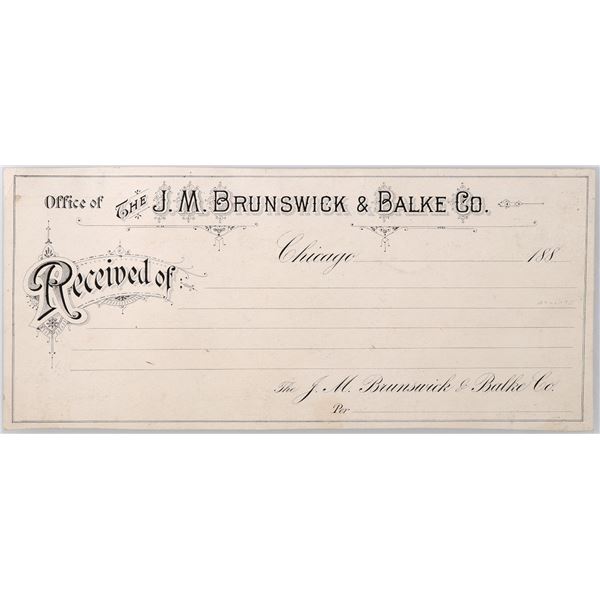 Office of THE J. M. BRUNSWICK & BALKE CO.
Chicago 188
Received of:
The J. M. Brunswick & Balke Co.
Per